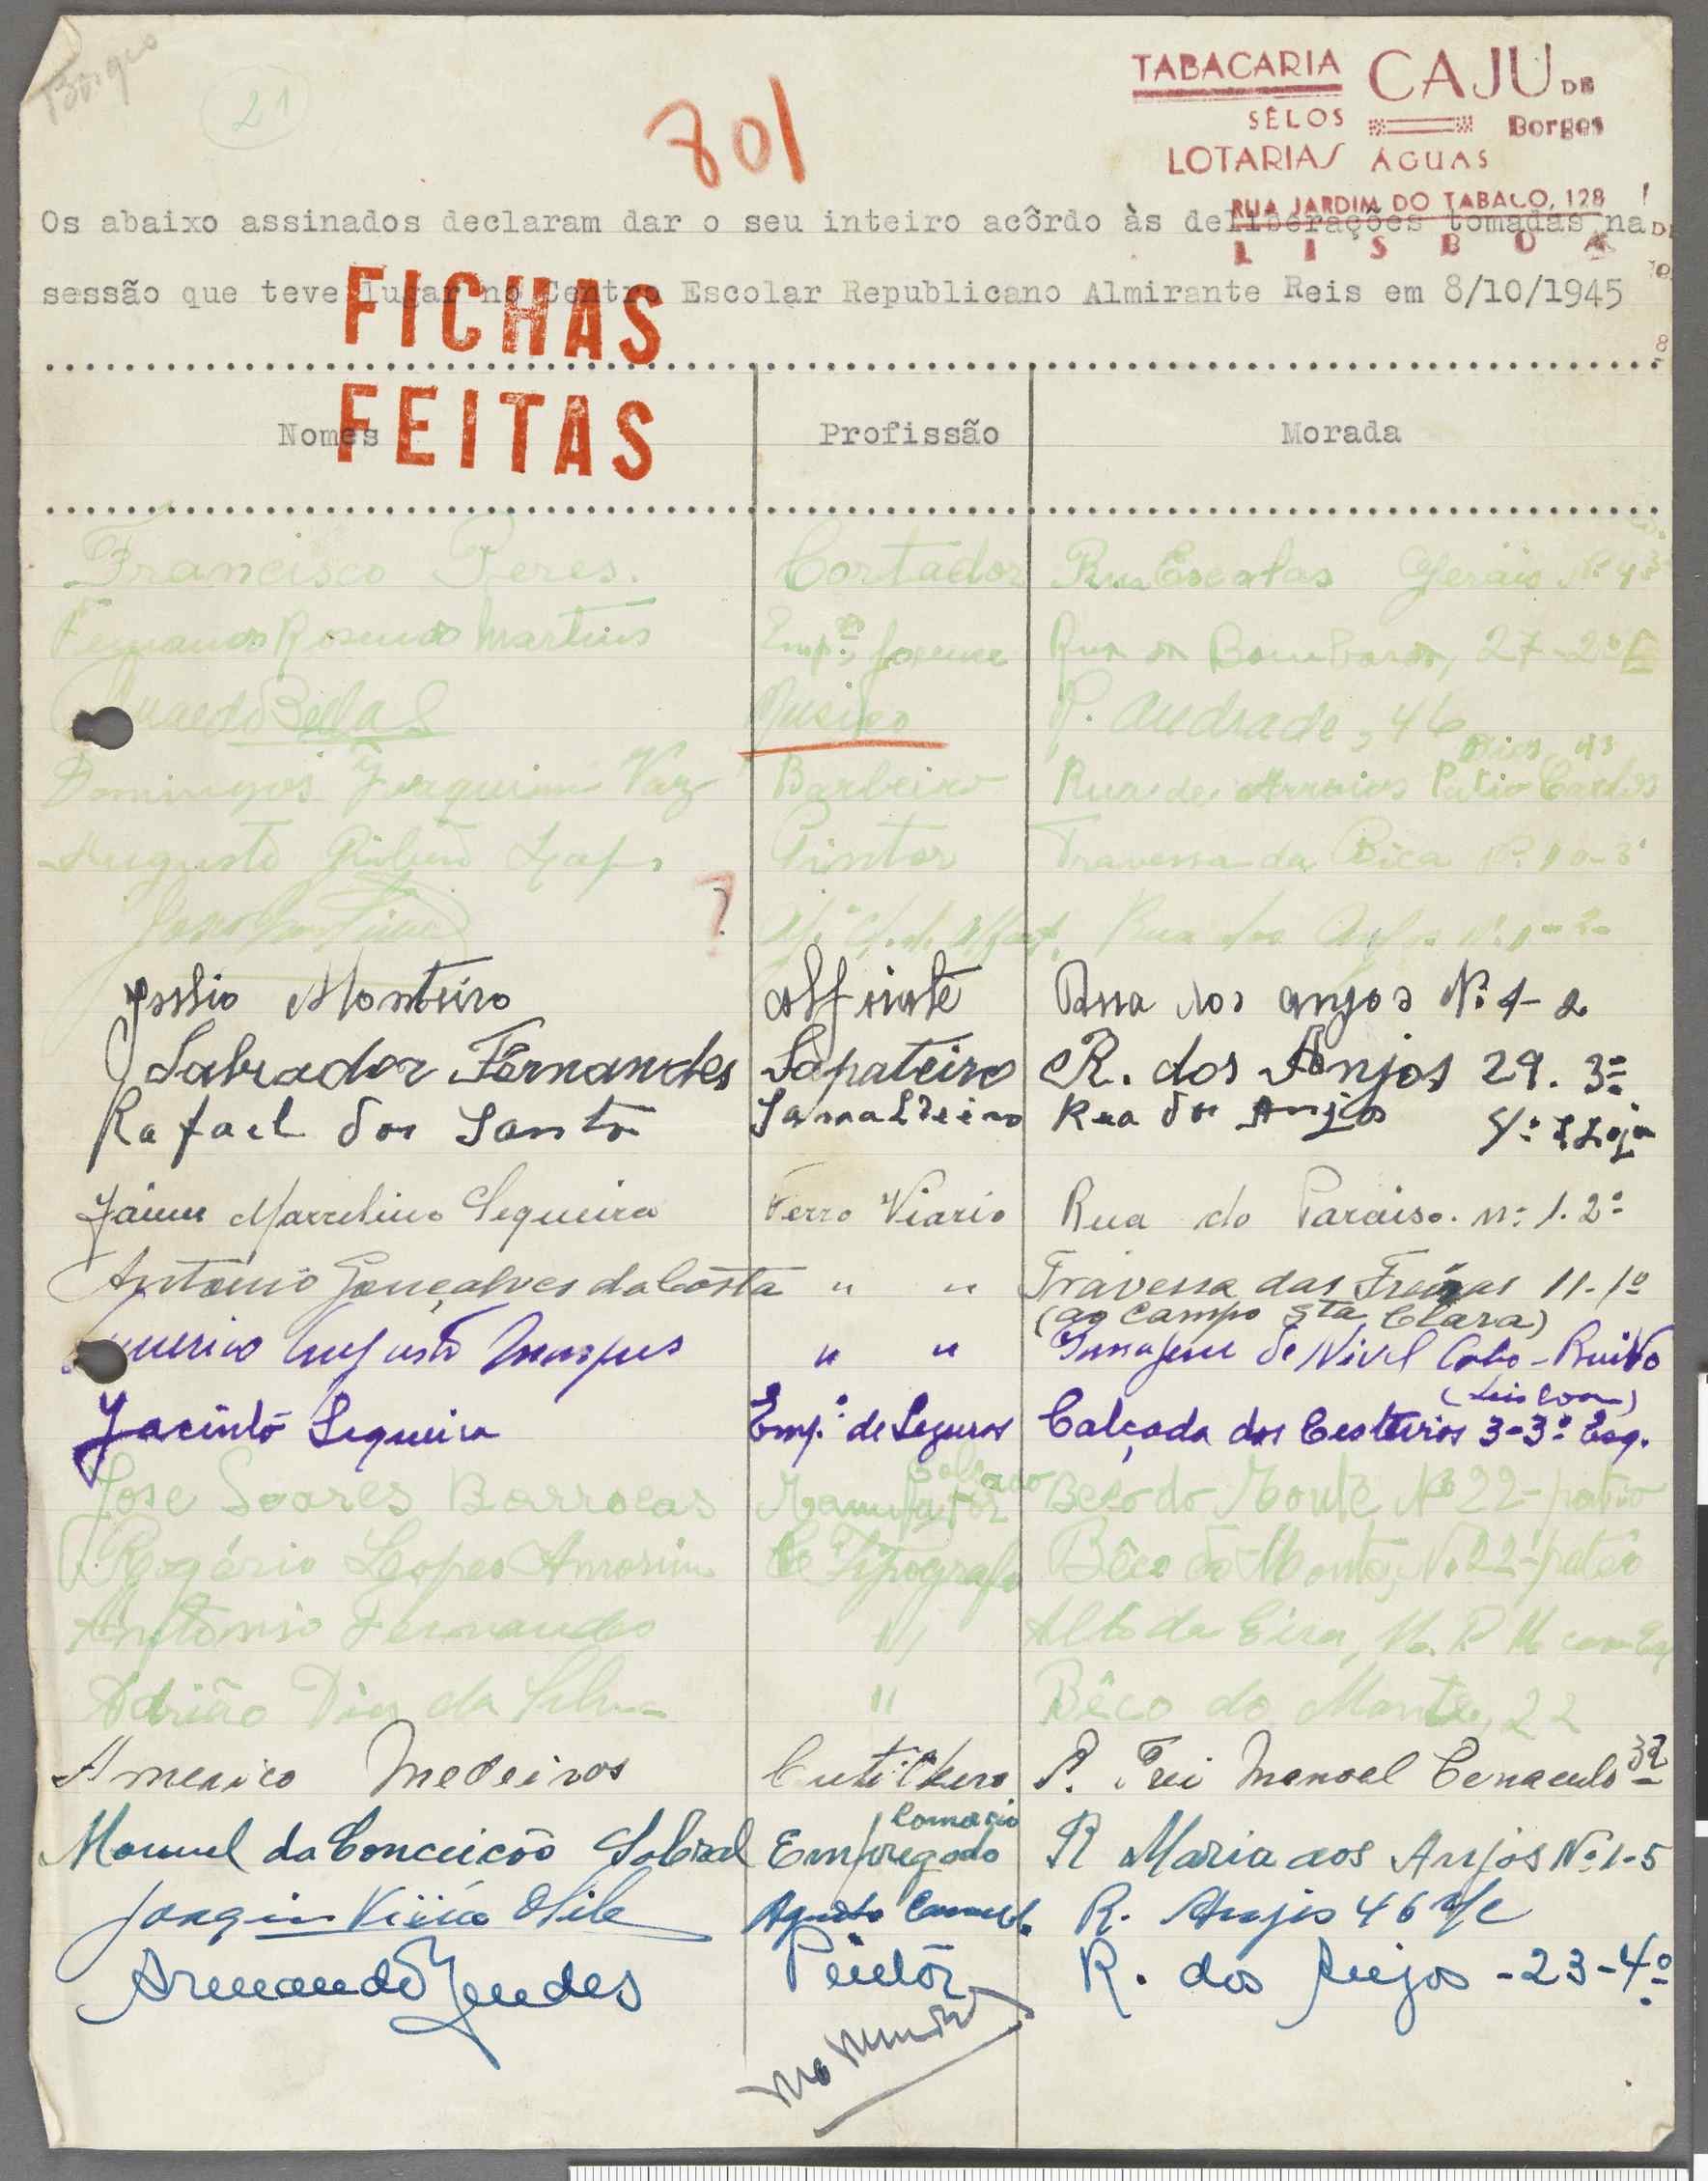 Borges
21
801
TABACARIA CAJU DE
SÊLOS Borges
LOTARIAS ÁGUAS
RUA JARDIM DO TABACO, 128
LISBOA
Os abaixo assinados declaram dar o seu inteiro acôrdo às deliberações tomadas na
sessão que teve lugar no Centro Escolar Republicano Almirante Reis em 8/10/1945
FICHAS
FEITAS
Nomes Profissão Morada
Francisco Peres. Cortador Rua Escolas Gerais Nº 43
Fernando Rosendo Martins Emp. Rua da Bombarda, 27-2º E
Músico R. Andrade, 46
Domingos Joaquim Vaz Barbeiro Rua de Arroios Patio
Augusto Pintor Travessa da Bica Nº 10-3º
? Rua dos Anjos Nº 1-2
Julio Monteiro Alfaiate Rua dos anjos Nº 1-2
Salvador Fernandes Sapateiro R. dos Anjos 29. 3º
Rafael dos Santos Rua dos Anjos Loja
Jaime Marcelino Sequeira Ferro Viario Rua do Paraiso. nº 1. 2º
Antonio Gonçalves da Costa " " Travessa das Freiras 11-1º
(ao Campo Sta Clara)
Augusto " " de Nivel Cabo-Ruivo
(Lisboa)
Jacinto Sequeira Emp.º de Seguros Calçada dos Cesteiros 3-3º Esq.
José Soares Barrocas Manufator Beco do Monte Nº 22-patio
Rogério Lopes Amorim Tipografo Bêco do Monte, Nº 22-patio
Antonio Fernandes " Alto da Eira,
Adrião Dias da Silva " Bêco do Monte, 22
Americo Medeiros Cutileiro R. Frei Manoel Cenaculo 32
Comercio
Manuel da Conceicão Sobral Empregado R Maria aos Anjos Nº 1-5
Joaquim R. Anjos 46 r/c
Armando Mendes Pintôr R. dos Anjos -23-4º